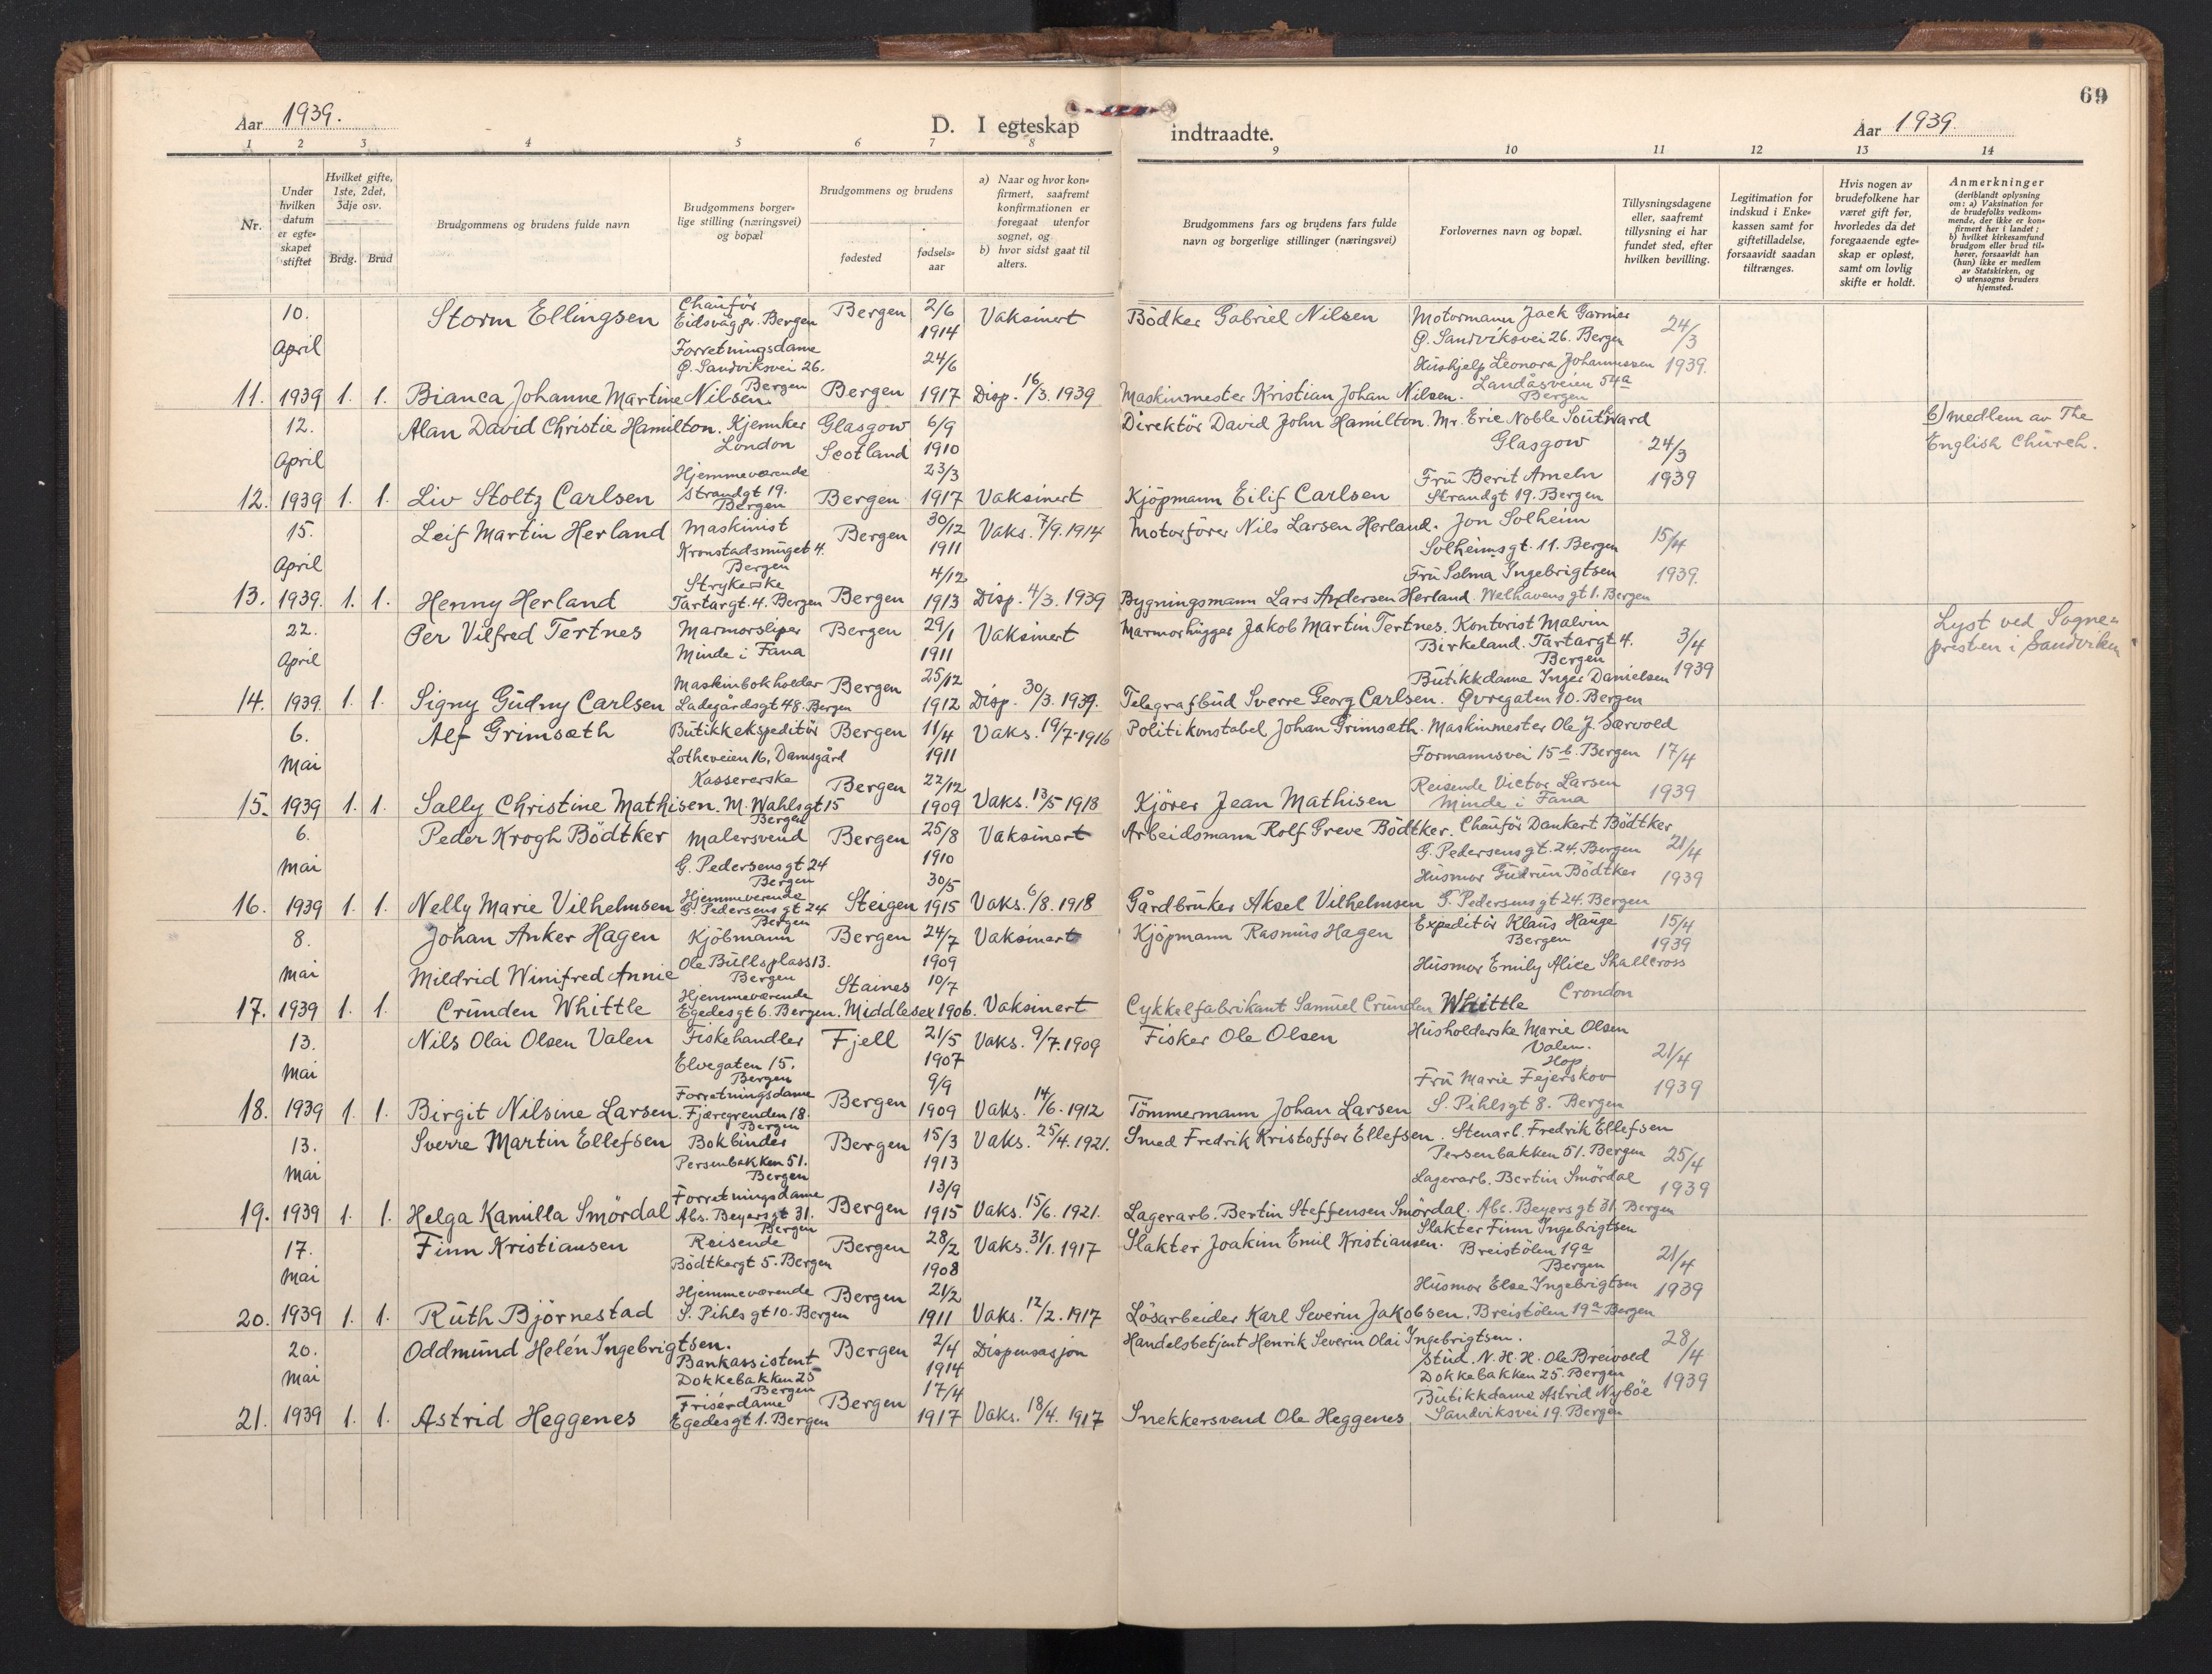 69
Aar 1939.
D. I egteskap indtraadte.
Aar 1939.
1 2 3 4 5 6 7 8 9 10 11 12 13 14
Nr.
Under hvilken datum er egte- skapet stiftet
Hvilket gifte, 1ste, 2det, 3dje osv.
Brdg. Brud
Brudgommens og brudens fulde navn
Brudgommens borger- lige stilling (næringsvei) og bopæl
Brudgommens og brudens
fødested
fødsels- aar
a) Naar og hvor kon- firmert, saafremt konfirmationen er foregaat utenfor sognet, og
b) hvor sidst gaat til alters.
Brudgommens fars og brudens fars fulde navn og borgerlige stillinger (næringsvei)
Forlovernes navn og bopæl.
Tillysningsdagene eller, saafremt tillysning ei har fundet sted, efter hvilken bevilling.
Legitimation for indskud i Enke- kassen samt for giftetilladelse, forsaavidt saadan tiltrænges.
Hvis nogen av brudefolkene har været gift før, hvorledes da det foregaaende egte- skap er opløst, samt om lovlig skifte er holdt.
Anmerkninger
(deriblandt oplysning om: a) Vaksination for de brudefolks vedkom- mende, der ikke er kon- firmert her i landet; b) hvilket kirkesamfund brudgom eller brud til- hører, forsaavidt han (hun) ikke er medlem av Statskirken, og c) utensogns bruders hjemsted.
10. April 1939
Storm Ellingsen
Chauför Eidsvåg pr. Bergen
Bergen 2/6 1914 Vaksinert
Bödker Gabriel Nilsen
Motormann Jack Garnier
Ø. Sandviksvei 26. Bergen
24/3 1939.
11. 1. 1. Bianca Johanne Martine Nilsen.
Forretningsdame Ø. Sandviksvei 26. Bergen
Bergen 24/6 1917 Disp. 16/3. 1939
Maskinmester Kristian Johan Nilsen.
Hushjelp Leonora Johannessen
Landåsveien 54a Bergen
12. April 1939
Alan David Christie Hamilton. Kjemiker London
Glasgow Scotland 6/9 1910
Direktör David John Hamilton. Mr. Eric Noble Southward
Glasgow
24/3 1939
b) medlem av The English Church.
12. 1. 1. Liv Stoltz Carlsen
Hjemmeværende Strandgt 19. Bergen
Bergen 23/3 1917 Vaksinert
Kjöpmann Eilif Carlsen
Fru Berit Ameln
Strandgt 19. Bergen
15. April 1939.
Leif Martin Herland
Maskinist Kronstadsmuget 4. Bergen
Bergen 30/12 1911 Vaks. 7/9. 1914
Motorförer Nils Larsen Herland. Jon Solheim
Solheimsgt. 11. Bergen
15/4 1939.
13. 1. 1. Henny Herland
Strykerske Tartargt. 4. Bergen
Bergen 4/12 1913 Disp. 4/3. 1939
Bygningsmann Lars Andersen Herland.
Fru Salma Ingebrigtsen
Welhavens gt 1. Bergen
22. April 1939.
Per Vilfred Tertnes
Marmorsliper Minde i Fana
Bergen 29/1 1911 Vaksinert
Marmorhugger Jakob Martin Tertnes. Kontorist Malvin
Birkeland. Tartargt 4. Bergen
3/4 1939
Lyst ved Sogne- presten i Sandviken
14. 1. 1. Signy Gudny Carlsen
Maskinbokholder Ladegårdsgt 48. Bergen
Bergen 25/12 1912 Disp. 30/3. 1939.
Telegrafbud Sverre Georg Carlsen.
Butikkdame Inger Danielsen
Øvregaten 10. Bergen
6. Mai 1939
Alf Grimsæth
Butikkekspeditör Lotheveien 16, Damsgård
Bergen 11/4 1911 Vaks. 19/7-1916
Politikonstabel Johan Grimsæth. Maskinmester Ole J. Særvold
Formannsvei 15b. Bergen
17/4 1939
15. 1. 1. Sally Christine Mathisen.
Kassererske M. Wahlsgt 15 Bergen
Bergen 22/12 1909 Vaks. 13/5 1918
Kjörer Jean Mathisen
Reisende Victor Larsen
Minde i Fana
6. Mai 1939
Peder Krogh Bödtker
Malersvend G. Pedersens gt 24 Bergen
Bergen 25/8 1910 Vaksinert
Arbeidsmann Rolf Greve Bödtker. Chauför Dankert Bödtker
G. Pedersens gt. 24. Bergen
21/4 1939
16. 1. 1. Nelly Marie Vilhelmsen
Hjemmeværende G. Pedersens gt 24 Bergen
Steigen 30/5 1915 Vaks. 6/8. 1918
Gårdbruker Aksel Vilhelmsen
Husmor Gudrun Bödtker
G. Pedersens gt 24. Bergen
8. Mai 1939
Johan Anker Hagen
Kjöbmann Ole Bullsplass 13. Bergen
Bergen 24/7 1909 Vaksinert
Kjöpmann Rasmus Hagen
Expeditör Klaus Hauge
Bergen
15/4 1939
17. 1. 1. Mildrid Winifred Annie Crunden Whittle
Hjemmeværende Egedesgt 6. Bergen.
Staines Middlesex 10/7 1906. Vaksinert
Cykkelfabrikant Samuel Crunden Whittle
Husmor Emily Alice Shallcross
Crondon
13. Mai 1939
Nils Olai Olsen Valen
Fiskehandler Elvegaten 15. Bergen
Fjell 21/5 1907 Vaks. 9/7. 1909
Fisker Ole Olsen
Husholderske Marie Olsen
Valen. Hop
21/4 1939
18. 1. 1. Birgit Nilsine Larsen.
Forretningsdame Fjæregrenden 18. Bergen
Bergen 9/9 1909 Vaks. 14/6. 1912
Tömmermann Johan Larsen
Fru Marie Fejerskov
S. Pihlsgt 8. Bergen
13. Mai 1939
Sverre Martin Ellefsen
Bokbinder Persenbakken 51. Bergen
Bergen 15/3 1913 Vaks. 25/4. 1921.
Smed Fredrik Kristoffer Ellefsen. Stenarb. Fredrik Ellefsen
Persenbakken 51. Bergen
25/4 1939
19. 1. 1. Helga Kamilla Smördal
Forretningsdame Abs. Beyers gt 31. Bergen
Bergen 13/9 1915 Vaks. 15/6. 1921.
Lagerarb. Bertin Steffensen Smördal.
Lagerarb. Bertin Smördal
Abs. Beyers gt 31. Bergen
17. Mai 1939
Finn Kristiansen
Reisende Bödtkergt 5. Bergen
Bergen 28/2 1908 Vaks. 31/1. 1917
Slakter Joakim Emil Kristiansen.
Slakter Finn Ingebrigtsen
Breistölen 19a Bergen
21/4 1939
20. 1. 1. Ruth Björnestad
Hjemmeværende S. Pihls gt 10. Bergen
Bergen 21/2 1911 Vaks. 12/2. 1917
Lösarbeider Karl Severin Jakobsen.
Husmor Else Ingebrigtsen
Breistölen 19a Bergen
20. Mai 1939
Oddmund Helén Ingebrigtsen.
Bankassistent Dokkebakken 25 Bergen
Bergen 2/4 1914 Dispensasjon
Handelsbetjent Henrik Severin Olai Ingebrigtsen.
Stud. N. H. H. Ole Breivold
Dokkebakken 25. Bergen
28/4 1939
21. 1. 1. Astrid Heggenes
Frisérdame Egedesgt 1. Bergen
Bergen 17/4 1917 Vaks. 18/4. 1917
Snekkersvend Ole Heggenes
Butikkdame Astrid Nyböe
Sandviksvei 19. Bergen